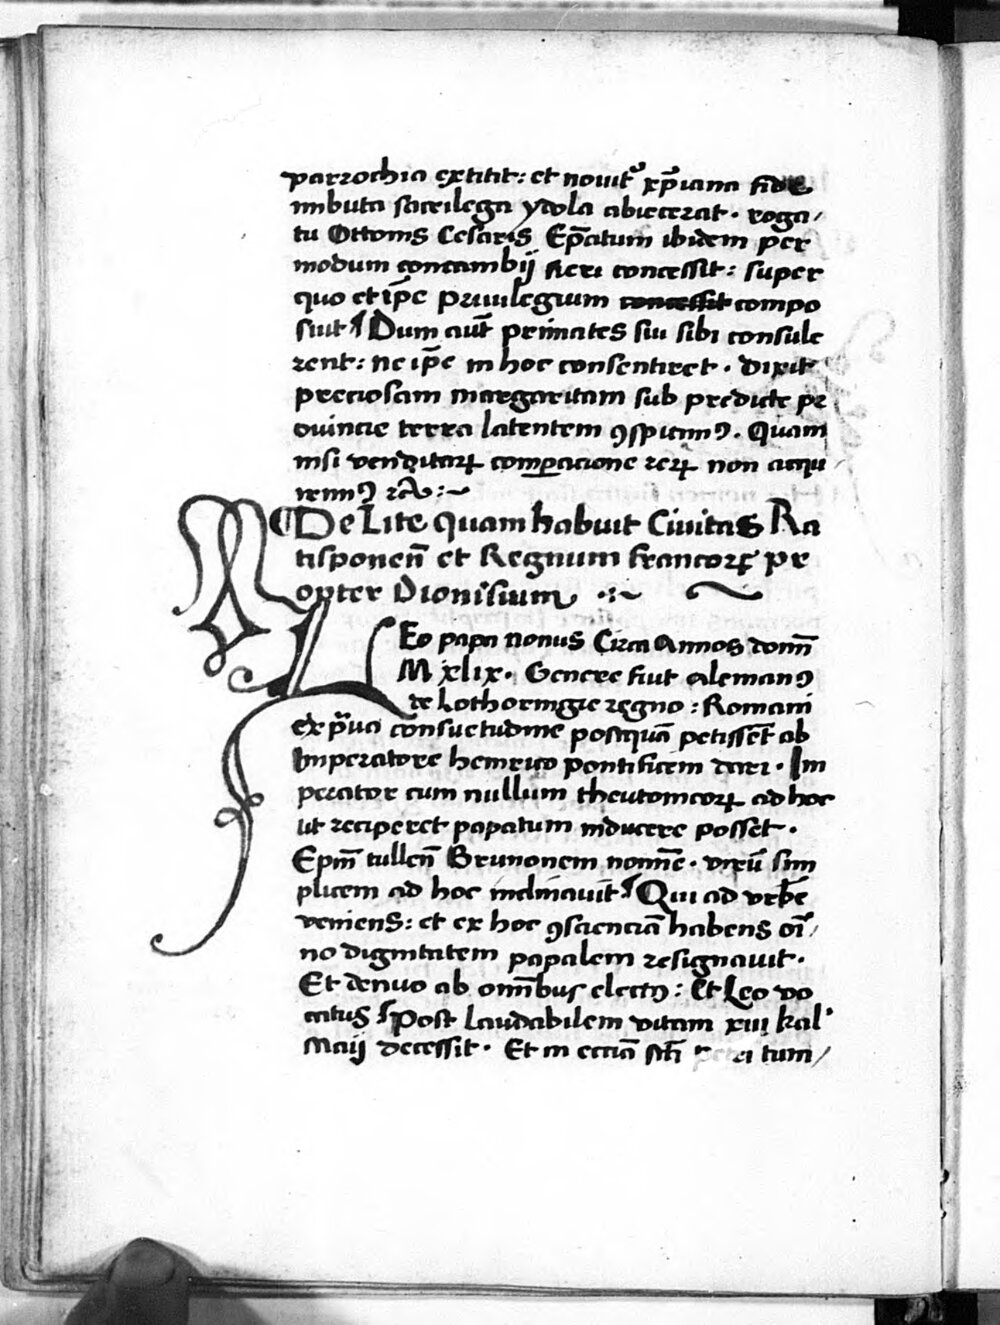 parrochia extitit: et nouit᷑ xp̄iana fide
imbuta sacrilega ydola abiecerat. roga/
tu Ottonis Cesaris Ep̄atum ibidem per
modum concambij fieri concessit: super
quo et ip̄e priuilegium concessit compo
suit ¶ Dum aut̄ primates sui sibi consule
rent: ne ip̄e in hoc consentiret. dixit
preciosam margaritam sub predicte pr
ouincie terra latentem ꝯspicimꝰ. Quam
nisi venditaꝝ comparacione reꝝ non acqui
remꝰ
¶ De Lite quam habuit Ciuitas Ra
tisponen̄ et Regnum francoꝝ pr
opter Dionisium
LEo papa nonus Circa Annos domī
M xlix. Genere fuit alemanꝰ
de Lothoringie regno: Romani
ex p̄ua consuetudine postquā petissēt ab
Imperatore heinrico pontificem dari. Im
perator cum nullum theutonicoꝝ ad hoc
ut reciperet papatum inducere posset.
Ep̄m tullen̄ Brunonem nomīe. virū sim
plicem ad hoc inclinauit ¶ Qui ad vrbē
veniens: et ex hoc ꝯscienciā habens oī/
no dignitatem papalem resignauit.
Et denuo ab om̄ibus electꝰ: Et Leo vo
catus ¶ Post laudabilem vitam xiii kal'
Maij decessit. Et in eccīa sc̄ti petri tum/